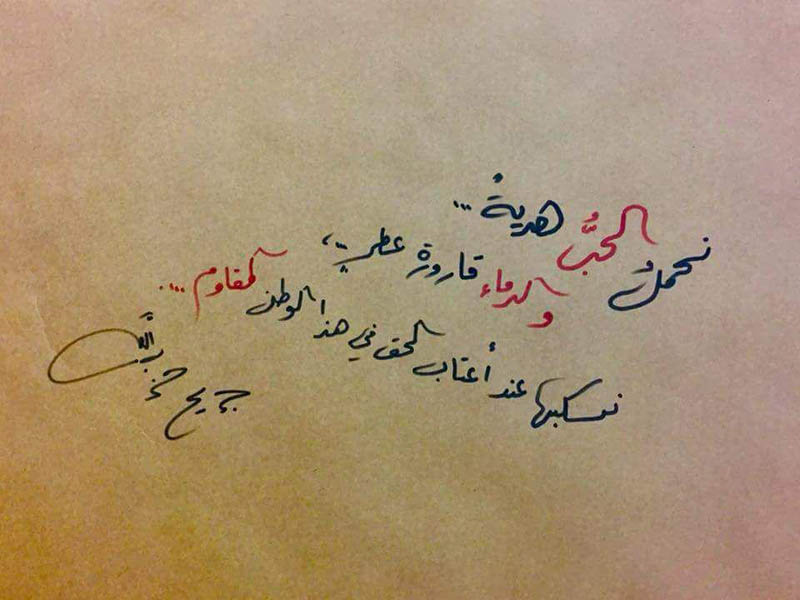 نحملُ الحبَّ هديةً ...
والدماء قارورة عطرٍ،
نسكبها عند أعتاب الحق في هذا الوطن المقاوم ...
جريح حزب الله